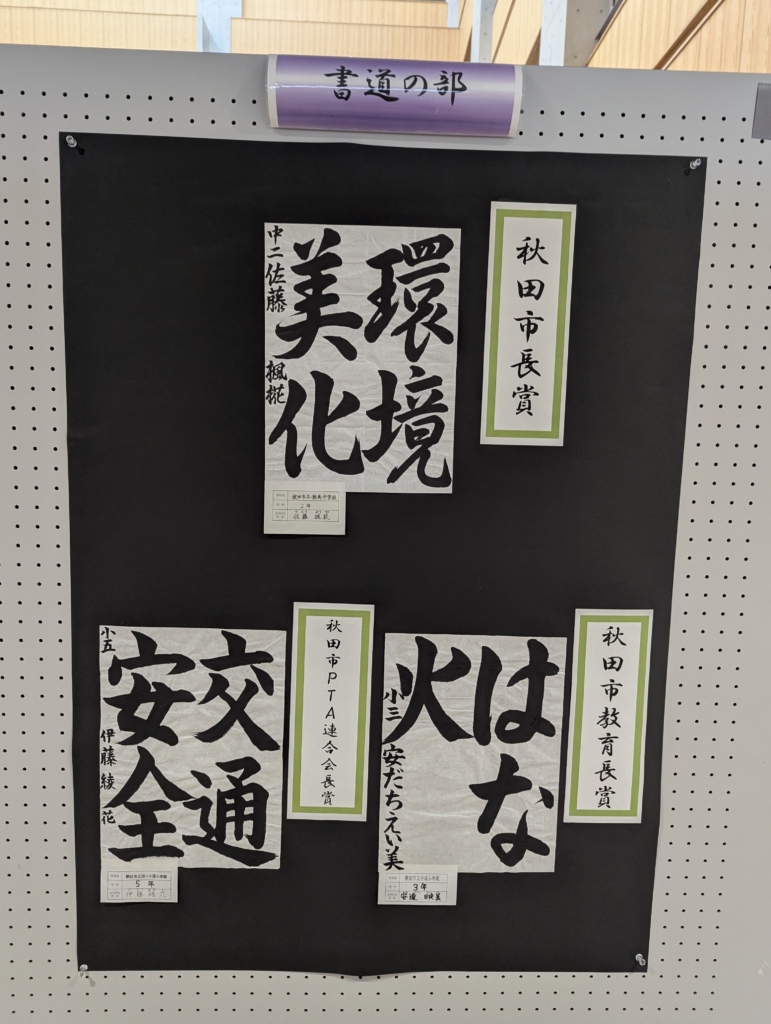 書道の部
秋田市長賞
環境
美化
中二 佐藤 楓椛
2年
秋田市教育長賞
はな
火
小三 安だちえい美
3年
安達 映美
秋田市PTA連合会長賞
交通
安全
小五 伊藤 綾花
5年
伊藤 綾花